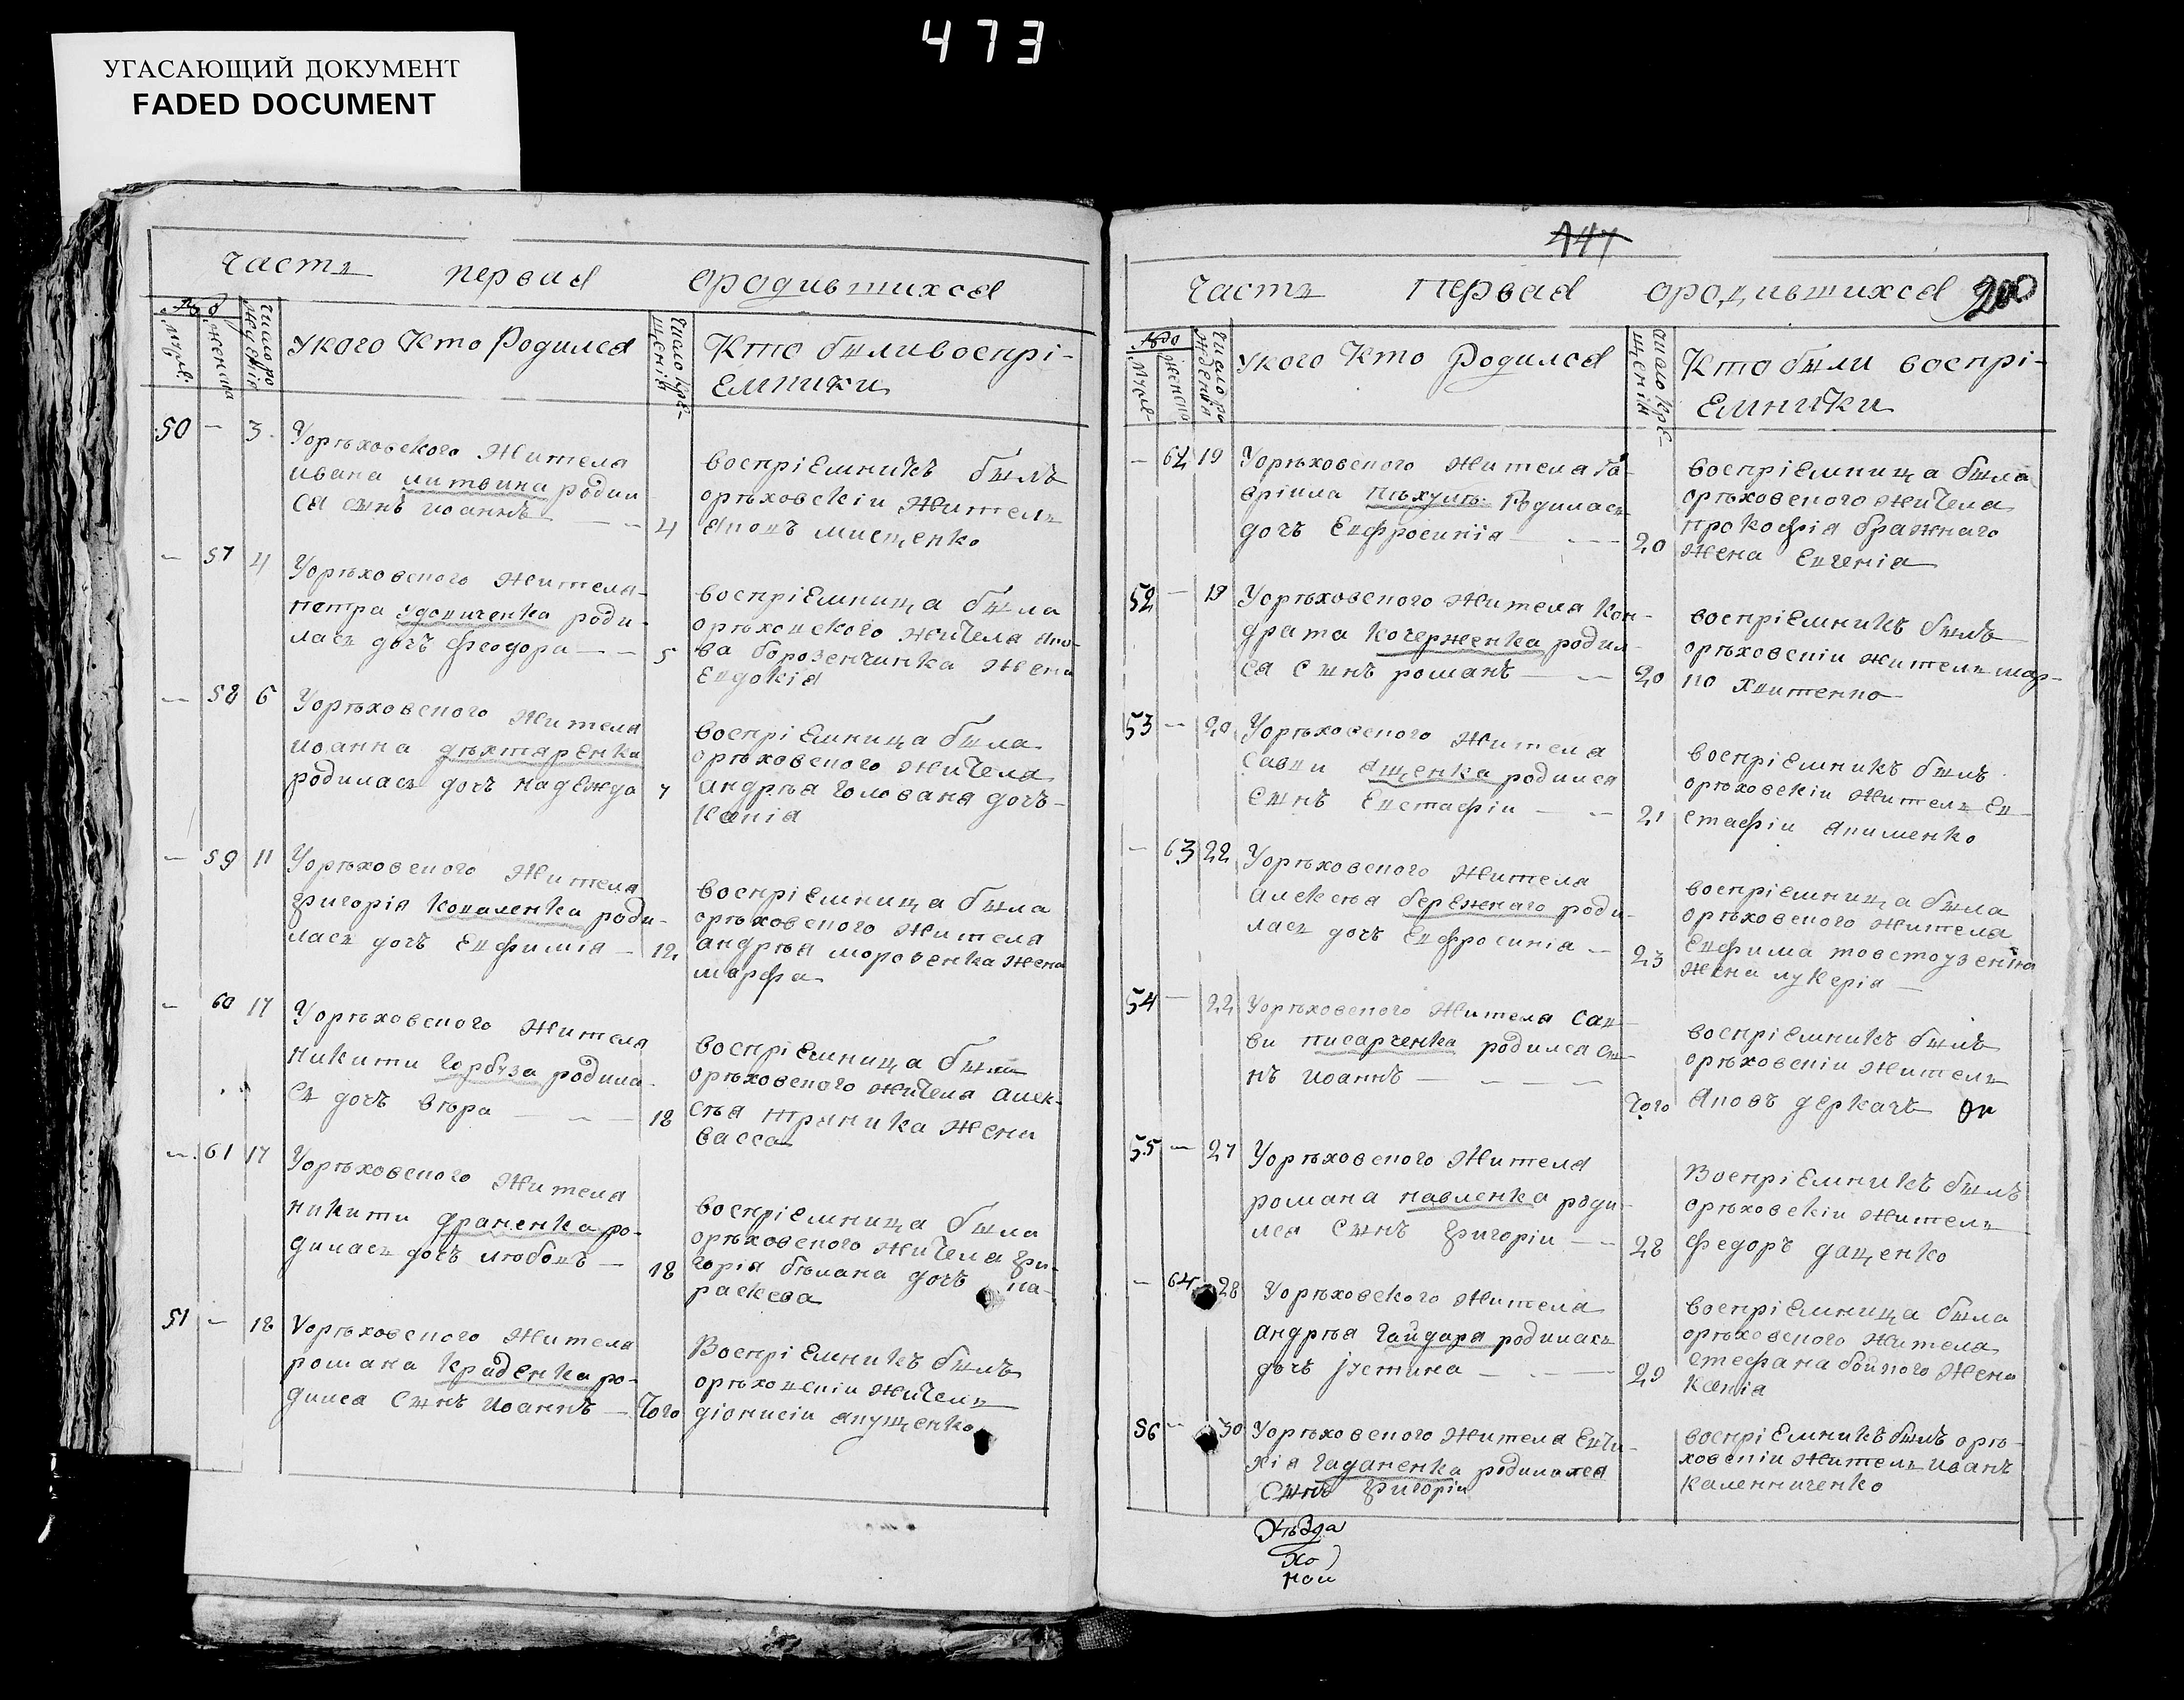 473
УГАСАЮЩИЙ ДОКУМЕНТ
FADED DOCUMENT
часть первая ородившихся
укого кто Родился
Кто были воспрі-
Емники
50 — 3
Уорѣховского Жителя
ивана литвина родил
ся сынъ иоаннъ — — 4
воспріЕмникъ былъ
орѣховскіи Житель
яковъ мищенко
— 57 4
Уорѣховского жителя
петра удовиченка роди-
лась дочъ феодора — — 5
воспріЕмница была
орѣховского жителя яко-
ва борозенчинка жена
Евдокія
— 58 6
Уорѣховского жителя
иоанна дѣхтярЕнка
родилась дочъ надЕжда 7
воспріЕмница была
орѣховского жителя
андрѣя голована дочъ
Ксенія
— 59 11
Уорѣховского Жителя
григорія коваленка роди-
лась дочъ Евфимія — 12
воспріЕмница была
орѣховского жителя
андрѣя морозенка жена
марфа
— 60 17
Уорѣховского Жителя
никити гарбуза родила-
сь дочъ вѣра — — 18
воспріЕмница была
орѣховского жителя алек-
сѣя жена
васса
— 61 17
Уорѣховского Жителя
никити драненка ро-
дилась дочъ любовъ — 18
воспріЕмница была
орѣховского жителя гри-
горія бѣлана дочъ па-
раскева
51 — 18
Уорѣховского Жителя
романа КрадЕнка ро-
дился Сынъ иоаннъ — Того
ВоспріЕмникъ былъ
орѣховскіи житель
діонисіи япущенко
147
часть Первая ородившихся 200
укого Кто Родился
Кто были воспрі-
Емники
— 62 19
Уорѣховского Жителя га-
вріила Родилась
дочъ Евфросинія — — 20
воспріЕмница была
орѣховского жителя
прокофія бражнаго
жена Евгенія
52 — 19
Уорѣховского Жителя Кон-
драта кочерженка родил-
ся Сынъ романъ — — 20
воспріЕмникъ былъ
орѣховскіи житель мар-
ко Хвитенко
53 — 20
Уорѣховского Жителя
Савви ященка родился
Сынъ Евстафіи — — 21
воспріЕмникъ былъ
орѣховскіи житель Ев-
стафіи якименко
— 63 22
Уорѣховского Жителя
алексѣя берЕжнаго роди-
лась дочъ Евфросинія — 23
воспріЕмница была
орѣховского жителя
Евфима товстоузенка
жена лукерія —
54 — 22
Уорѣховского Жителя Сав-
ви писарченка родился сы-
нъ иоаннъ — — — Того
воспріЕмникъ былъ
орѣховскіи житель
яковъ деркачъ
55 — 27
Уорѣховского Жителя
романа павленка роди-
лся Сынъ григоріи — — 28
ВоспріЕмникъ былъ
орѣховскіи житель
федоръ даценко
— 64 28
Уорѣховского Жителя
андрѣя гайдара родилась
дочъ іустина — — 29
воспріЕмница была
орѣховского жителя
стефана бойного жена
Ксенія
56 — 30
Уорѣховского Жителя Евти-
хія гаданенка родился
Сынъ григоріи
воспріЕмникъ былъ орѣ-
ховскіи житель иванъ
каленниченко